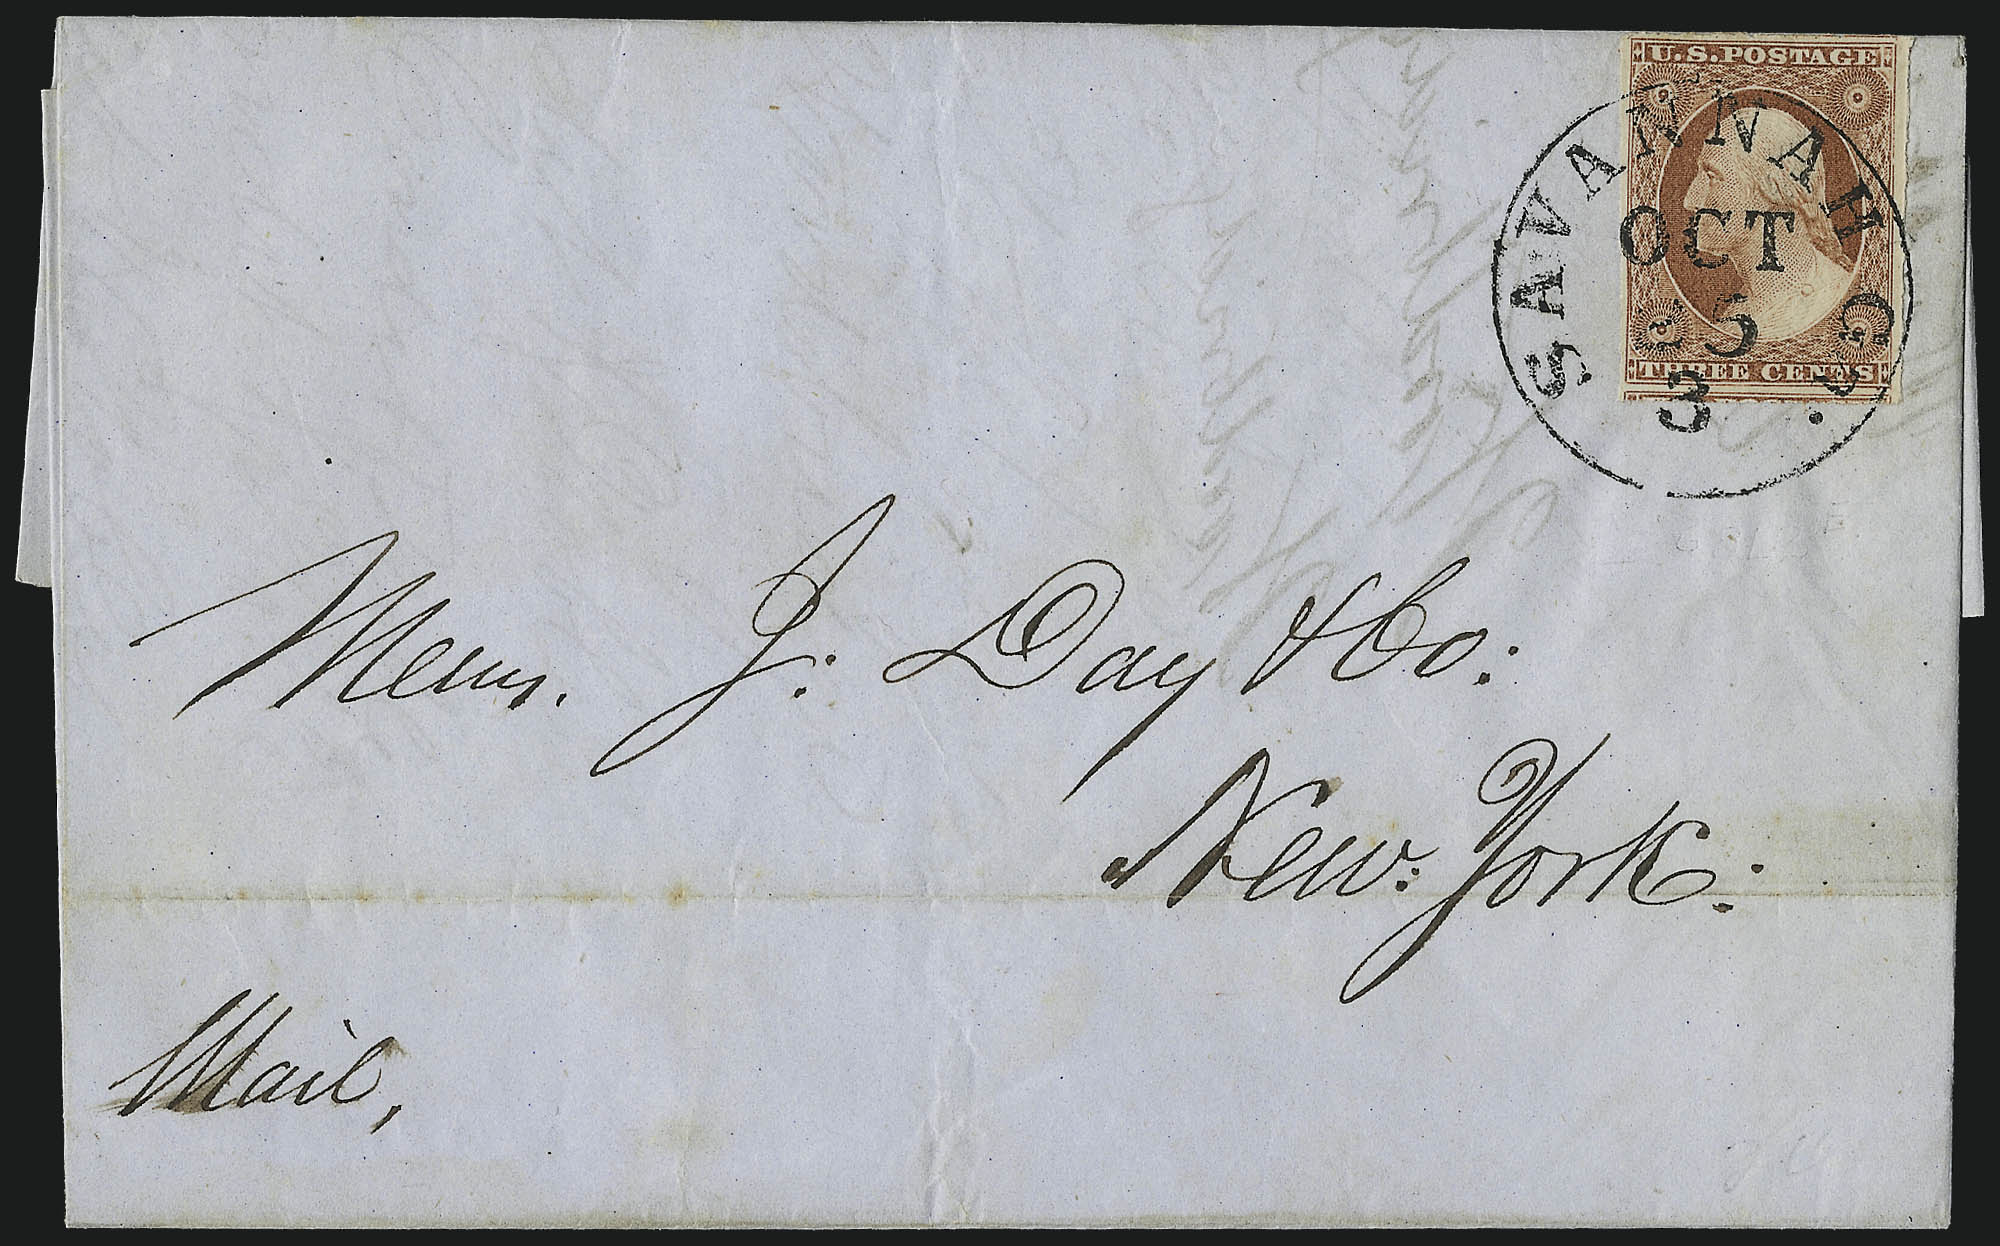 U.S. POSTAGE
SAVANNAH Ga.
OCT
25
3
THREE CENTS
Messrs. J: Day & Co:
New: York:
Mail,